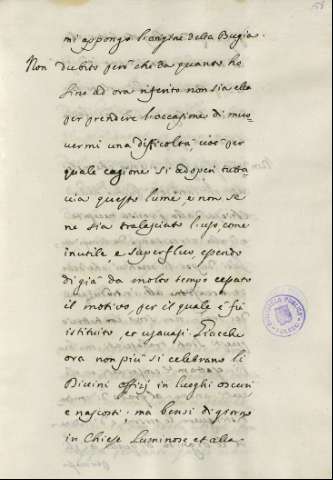 mi appongo l'origine della Bugia.
Non dubito però che da quanto ho
sino ad ora riferito non sia ella
per prendere l'occasione di muo-
vermi una difficoltà, cioè per
quale cagione si adoperi tutta
via questo lume, e non se
ne sia tralasciato l'uso, come
inutile e superfluo, essendo
di già da molto tempo cessato
il motivo, per il quale è fu
istituito, et usavasi. Giacchè
ora non più si celebrano li
Divini offizj in luoghi oscuri
e nascosti, ma bensì di giorno
in Chiese luminose et alla